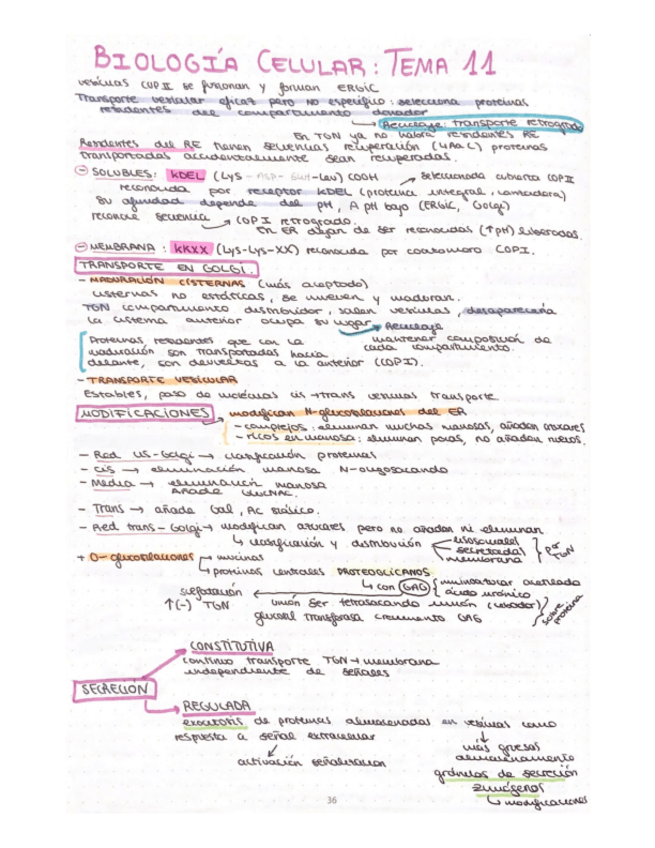 BIOLOGÍA CELULAR: TEMA 11
vesículas COP II se fusionan y forman ERGIC
Transporte vesicular eficaz pero no específico: selecciona proteínas
residentes del compartimento donador
→ Reciclaje: transporte retrogrado
En TGN ya no habrá residentes RE
Residentes del RE tienen secuencias recuperación (4 AAC) proteínas
transportadas accidentalmente sean recuperadas.
- SOLUBLES: KDEL (Lys - ASP - GLU - Leu) COOH → seleccionada cubierta COP II
reconocida por receptor KDEL (proteína integral, lanzadora)
su afinidad depende del pH, A pH bajo (ERGIC, Golgi)
reconoce secuencia → COP I retrogrado.
En ER dejan de ser reconocidas (↑pH) liberadas.
- MEMBRANA: KKXX (Lys-Lys-XX) reconocida por coatomero COPI.
TRANSPORTE EN GOLGI.
- MADURACIÓN CISTERNAS (más aceptado)
cisternas no estáticas, se mueven y maduran.
TGN compartimento distribuidor, salen vesículas, desaparecería
la cisterna anterior ocupa su lugar → Reciclaje
mantener composición de
cada compartimento.
Proteínas residentes que con la
maduración son transportadas hacia
delante, son devueltas a la anterior (COPI).
- TRANSPORTE VESICULAR
Estables, paso de moléculas cis → trans vesículas transporte
MODIFICACIONES → modifican N-glucosilaciones del ER
- complejos: eliminan muchas manosas, añaden azúcares
- ricos en manosa: eliminan pocas, no añaden nuevos.
- Red cis-Golgi → clasificación proteínas
- cis → eliminación manosa N-oligosacárido
- Media → eliminación manosa
Añade GlucNAC.
- Trans → añade Gal, Ac siálico.
- Red trans-Golgi → modifican azúcares pero no añaden ni eliminan
↳ clasificación y distribución
lisosomales
secretadas
membrana
por TGN
+ O-glucosilaciones → mucinas
→ proteínas centrales PROTEOGLICANOS
↳ con GAG
aminoazúcar acetilado
ácido urónico
sulfatación
↑(-) TGN
unión Ser tetrasacárido unión (cebador)
glucosil transferasa crecimiento GAG
sobre proteína
SECRECIÓN
CONSTITUTIVA
continuo transporte TGN → membrana
independiente de señales
REGULADA
exocitosis de proteínas almacenadas en vesículas como
respuesta a señal extracelular
activación señalización
más gruesas
almacenamiento
gránulos de secreción
zimógenos
↳ modificaciones
36